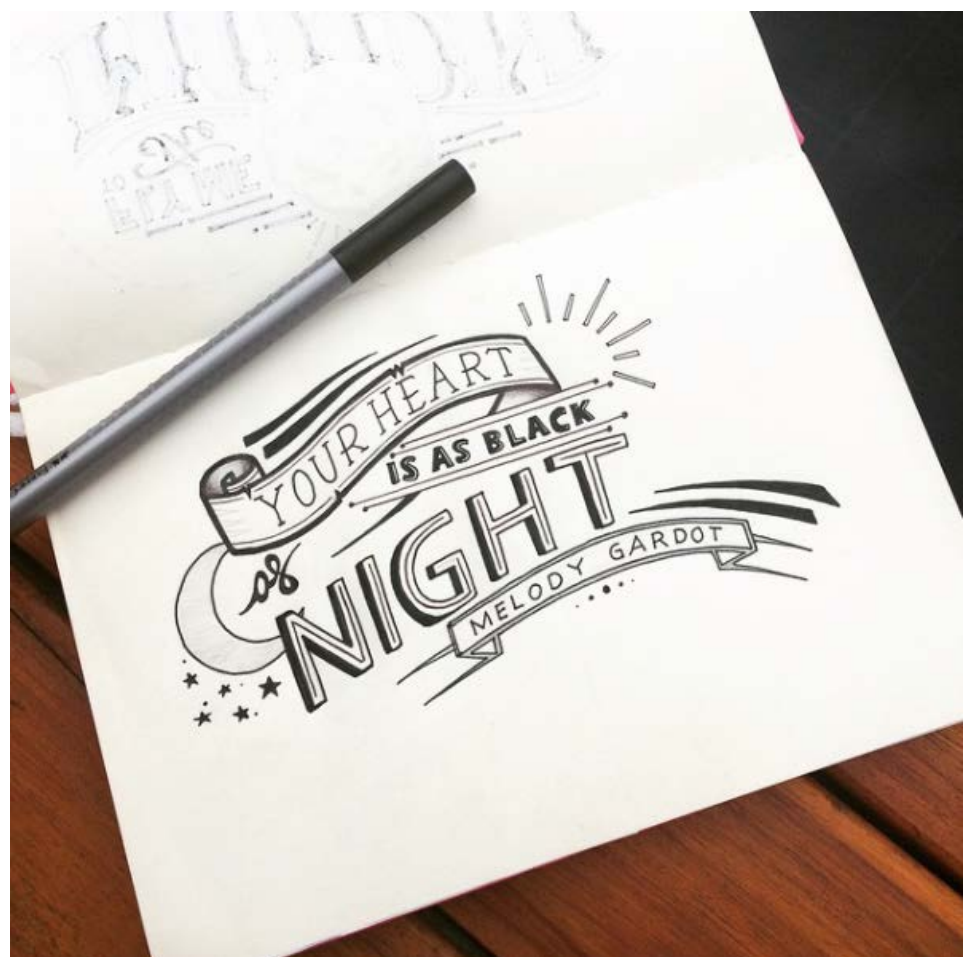 YOUR HEART
IS AS BLACK
as
NIGHT
MELODY GARDOT